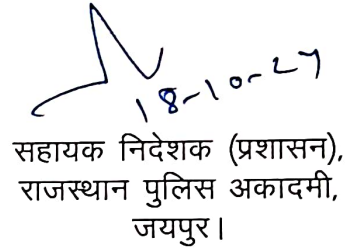 18-10-24
सहायक निदेशक (प्रशासन),
राजस्थान पुलिस अकादमी,
जयपुर।